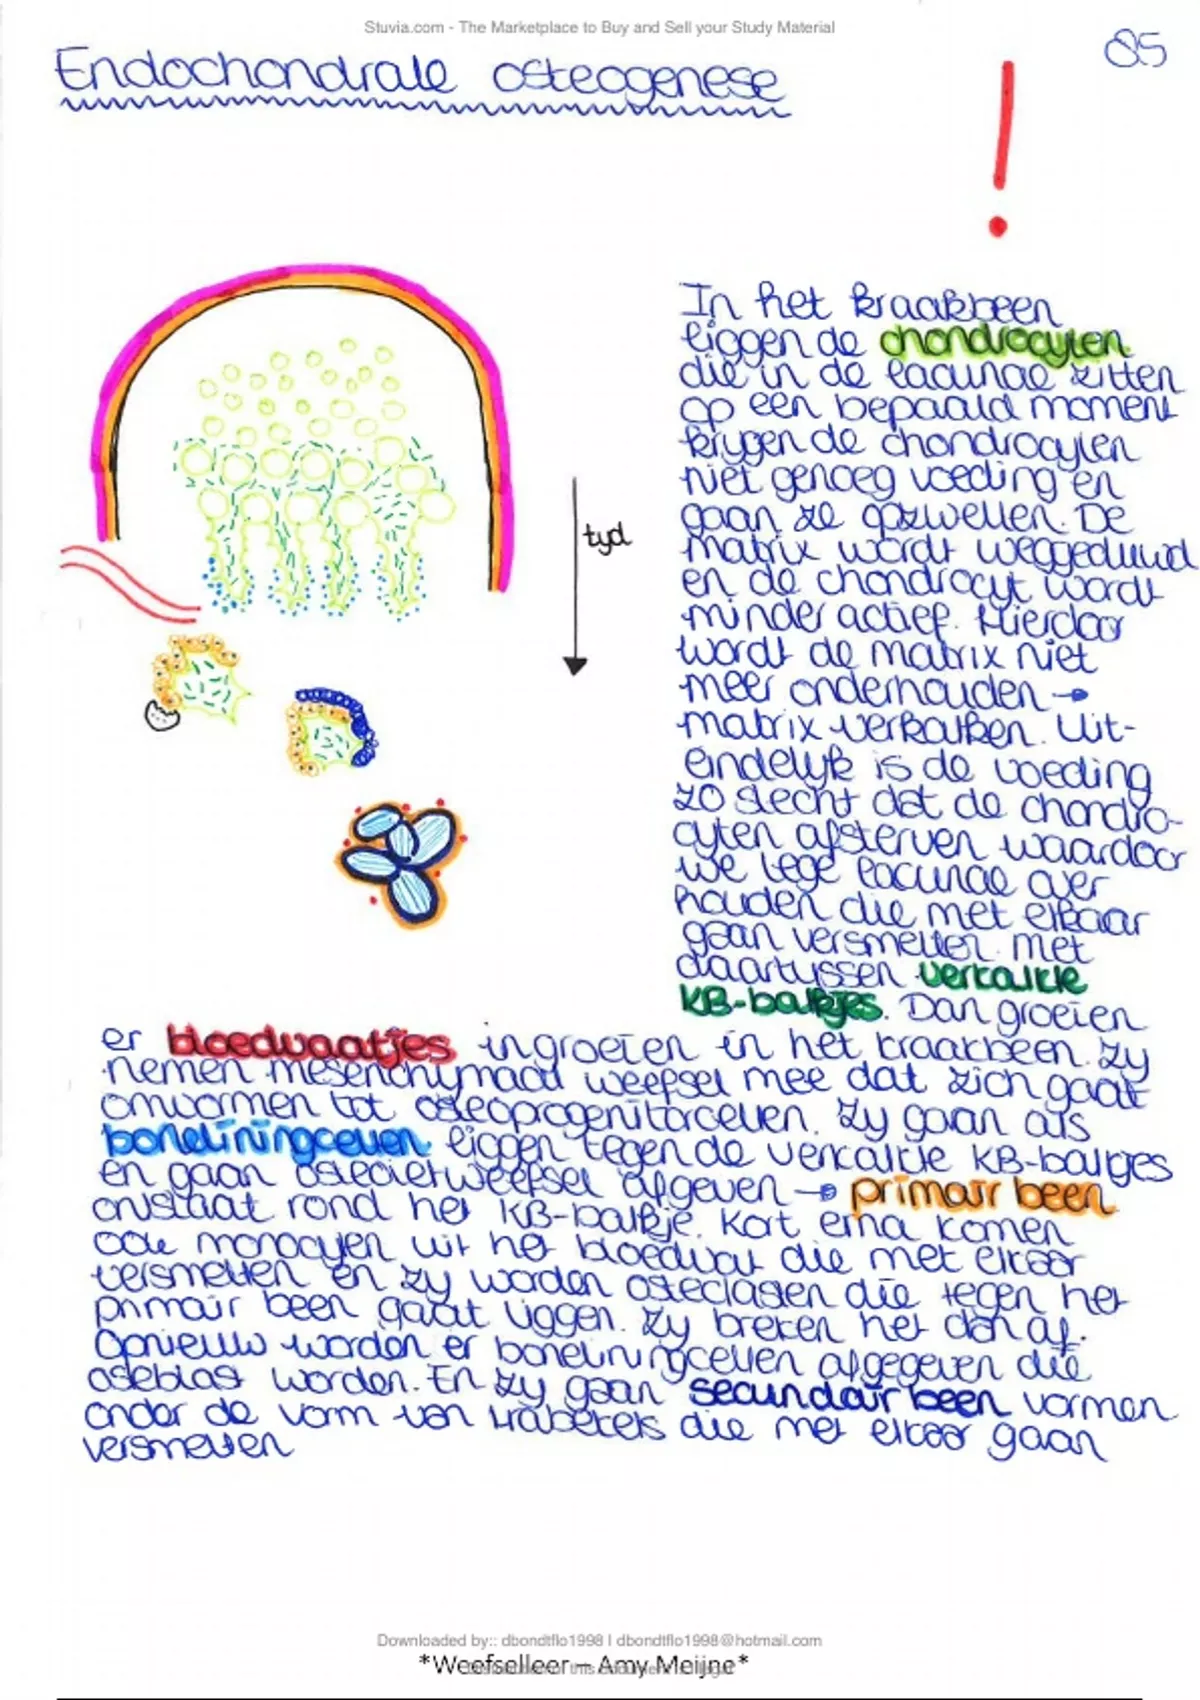 Stuvia.com - The Marketplace to Buy and Sell your Study Material
85
Endochondrale osteogenese
!
In het kraakbeen
liggen de chondrocyten
die in de lacunae zitten
op een bepaald moment
krijgen de chondrocyten
niet genoeg voeding en
gaan ze opzwellen. De
matrix wordt weggeduwd
en de chondrocyt wordt
minder actief. Hierdoor
wordt de matrix niet
meer onderhouden →
matrix verkalken. Uit-
eindelijk is de voeding
zo slecht dat de chondro-
cyten afsterven waardoor
we lege lacunae over
houden die met elkaar
gaan versmelten. met
daartussen verkalkte
KB-balkjes. Dan groeien
tyd
er bloedvaatjes ingroeien in het kraakbeen. Zy
nemen mesenchymaal weefsel mee dat zich gaat
omvormen tot osteoprogenitorcellen. Zy gaan als
boneliningcellen liggen tegen de verkalkte KB-balkjes
en gaan osteoietweefsel afgeven → primair been
ontstaat rond het KB-balkje. Kort erna komen
ook monocyten uit het bloedvat die met elkaar
versmelten en zy worden osteclasten die tegen het
primair been gaat liggen. Zy breken het dan af.
Opnieuw worden er boneliningcellen afgegeven die
osteblast worden. En zy gaan secundair been vormen
onder de vorm van trabekels die met elkaar gaan
versmelten
Downloaded by:: dbondtflo1998 | dbondtflo1998@hotmail.com
*Weefselleer – Amy Meijne*